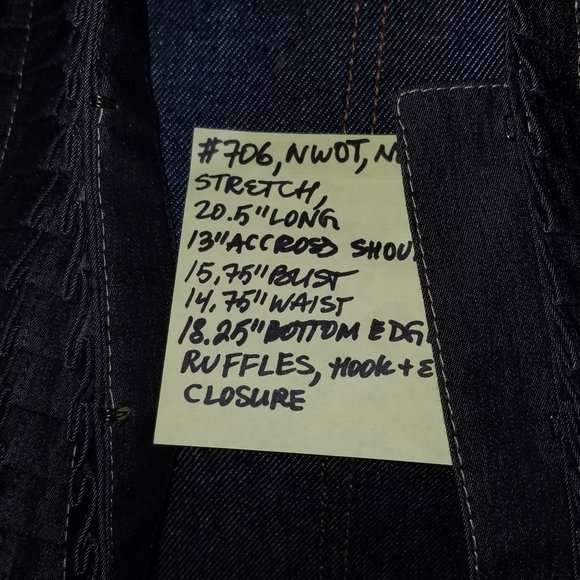 #706, NWOT, N
STRETCH,
20.5" LONG
13" ACCROSD SHOU
15.75" BUST
14.75" WAIST
18.25" BOTTOM EDG
RUFFLES, HOOK + E
CLOSURE